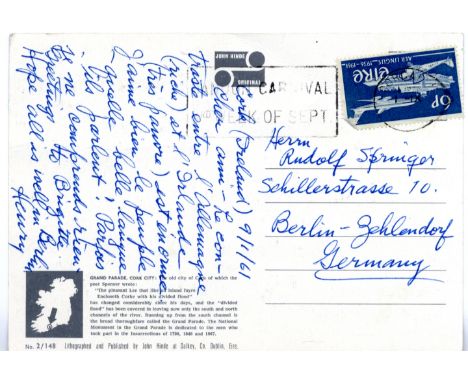 Cork (Ireland) 9/1/61
Cher ami - Le con-
traste entre l'Allemagne
(riche) et l'Irlande
(très pauvre) est enorme
J'aime bien le peuple
quelle belle langue
ils parlent!
Je ne comprends rien
Greetings to Brigitte
Hope all is well in Berlin
Henry
JOHN HINDE
CARNIVAL
WEEK OF SEPT
AER LINGUS 1936-1961
éire
6p
Herrn
Rudolf Springer
Schillerstrasse 10.
Berlin-Zehlendorf
Germany
GRAND PARADE, CORK CITY: The old city of Cork of which the
poet Spenser wrote:
"The pleasant Lee that like an Island fayre
Encloseth Corke with his divided flood"
has changed considerably since his days, and the "divided
flood" has been covered in leaving now only the south and north
channels of the river. Running up from the south channel is
the broad thoroughfare called the Grand Parade. The National
Monument in the Grand Parade is dedicated to the men who
took part in the Insurrections of 1798, 1848 and 1867.
No. 2/148 Lithographed and Published by John Hinde at Sulkey, Co. Dublin, Eire.